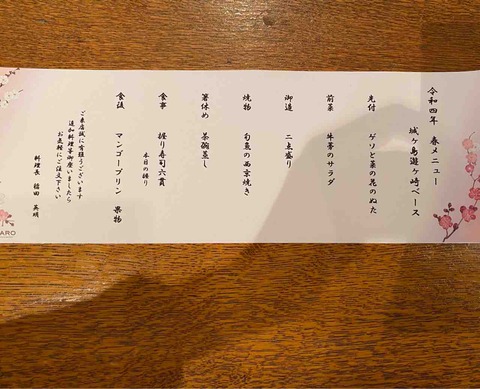 令和四年 春メニュー
城ヶ島遊ヶ崎ベース
先付 ゲソと菜の花のぬた
前菜 牛蒡のサラダ
御造 二点盛り
焼物 旬魚の西京焼き
箸休め 茶碗蒸し
食事 握り寿司六貫
本日の握り
食後 マンゴープリン 果物
ご来店誠に有難うございます
追加料理等御座いましたら
お気軽にご注文下さい
料理長 稲田 英明
ARO